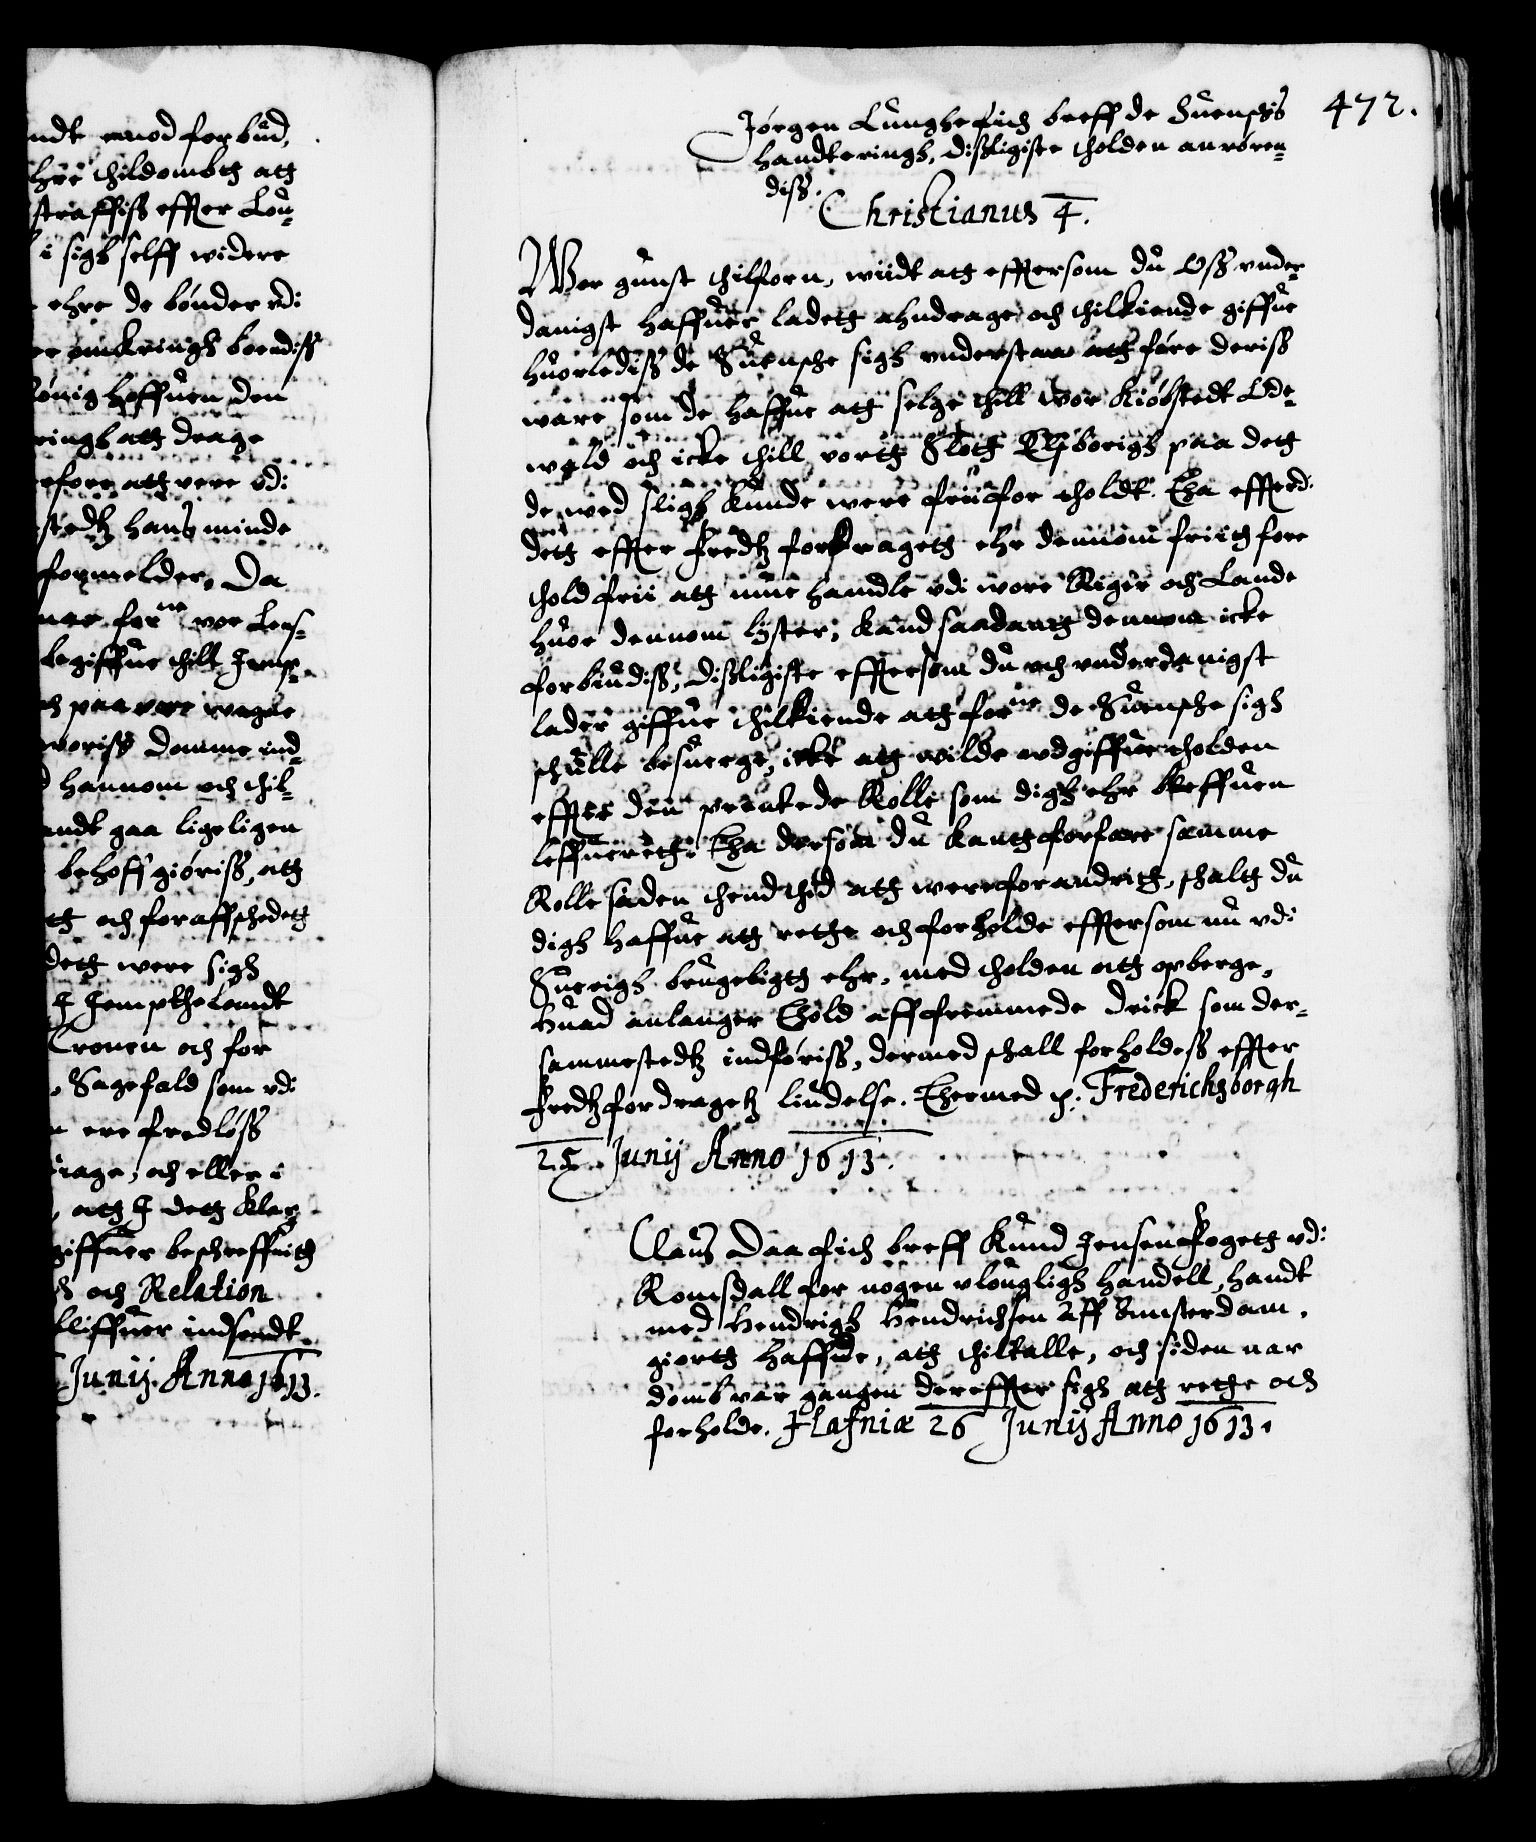 ndt emod forbud,
hre thildømbtg att
straffis effter Lou-
i sigh selff widere
ehre de bønder vdi
omkringh boendis
kønigh hoffuen den
ringh att drage
refore att vere vdi
stedtz hans minde
formelder, Da
forne vor Lens-
begiffue thill Jemp-
h paa vore wegne
woriss domme ind-
hannom och thil-
andt gaa ligeligen
behoff giøriss, att
och foraffschedett
dett were sigh
I Jempthelandt
Cronen och for
, Sagefald som vdi
ere fredløss
rage, och eller i
, att I dett klar
giffuer beschreffuith
och Relation
kliffuer indsendt.
Junij Anno 1613.
472.
Jørgen Lunghe fich breff de Suenschis
handteringh, disligiste tholden anrøren-
diss.
Christianus 4.
Wor gunst thilforn, wiidt att effttersom du Oss vnder-
danigst haffuer ladett ahndrage och thilkiende giffue
huorlediss de Suensche sigh vnderstaa att føre deriss
ware som de haffue att selge thill wor Kiøbstedt Ode-
wald och icke thill vortt Slott Elsborigh paa dett
de wed sligh kunde were frii for tholdt. Tha efftterd.
dett effter fredtz fordragett ehr dennom friitt fore
thold frii att mue handle vdi wore Riger och Lande
huor dennom lyster, kand saadantt dennom icke
forbiudiss, Disligiste effttersom du och vnderdanigst
lader giffue thilkiende att forne de Suensche sigh
schulle besuerge, icke att wilde vdgiffue tholden
effter den prentede Rolle som digh ehr bleffuen
leffuerett. Tha dersom du kantt forfare samme
Rolle siden thend thid att were forandritt, schaltt du
digh haffue att rette och forholde effttersom nu vdi
Suerigh brugeligtt ehr, med tholden att opberge.
Huad anlanger Thold aff fremmede drick som der-
sammestedtz indføriss, dermed schall forholdess effter
fredtzfordragetz liudelse. Thermed p. Frederichsborgh
25 Junij Anno 1613.
Claus Daa fich breff Knud Jensen fogett vdi
Romsdall for nogen vlougligh handell, handt
med Hendrigh Hendrichsen Aff Amsterdam
giortt haffde, att thiltalle, och siden nar
domb var gangen derefftter sigh att rette och
forholde. Hafniæ 26 Junij Anno 1613.